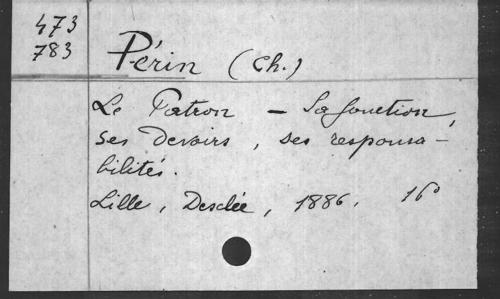 473
783
Périn (Ch.)
Le Patron – Sa fonction,
ses devoirs, ses responsa-
bilités.
Lille, Desclée, 1886. 16°